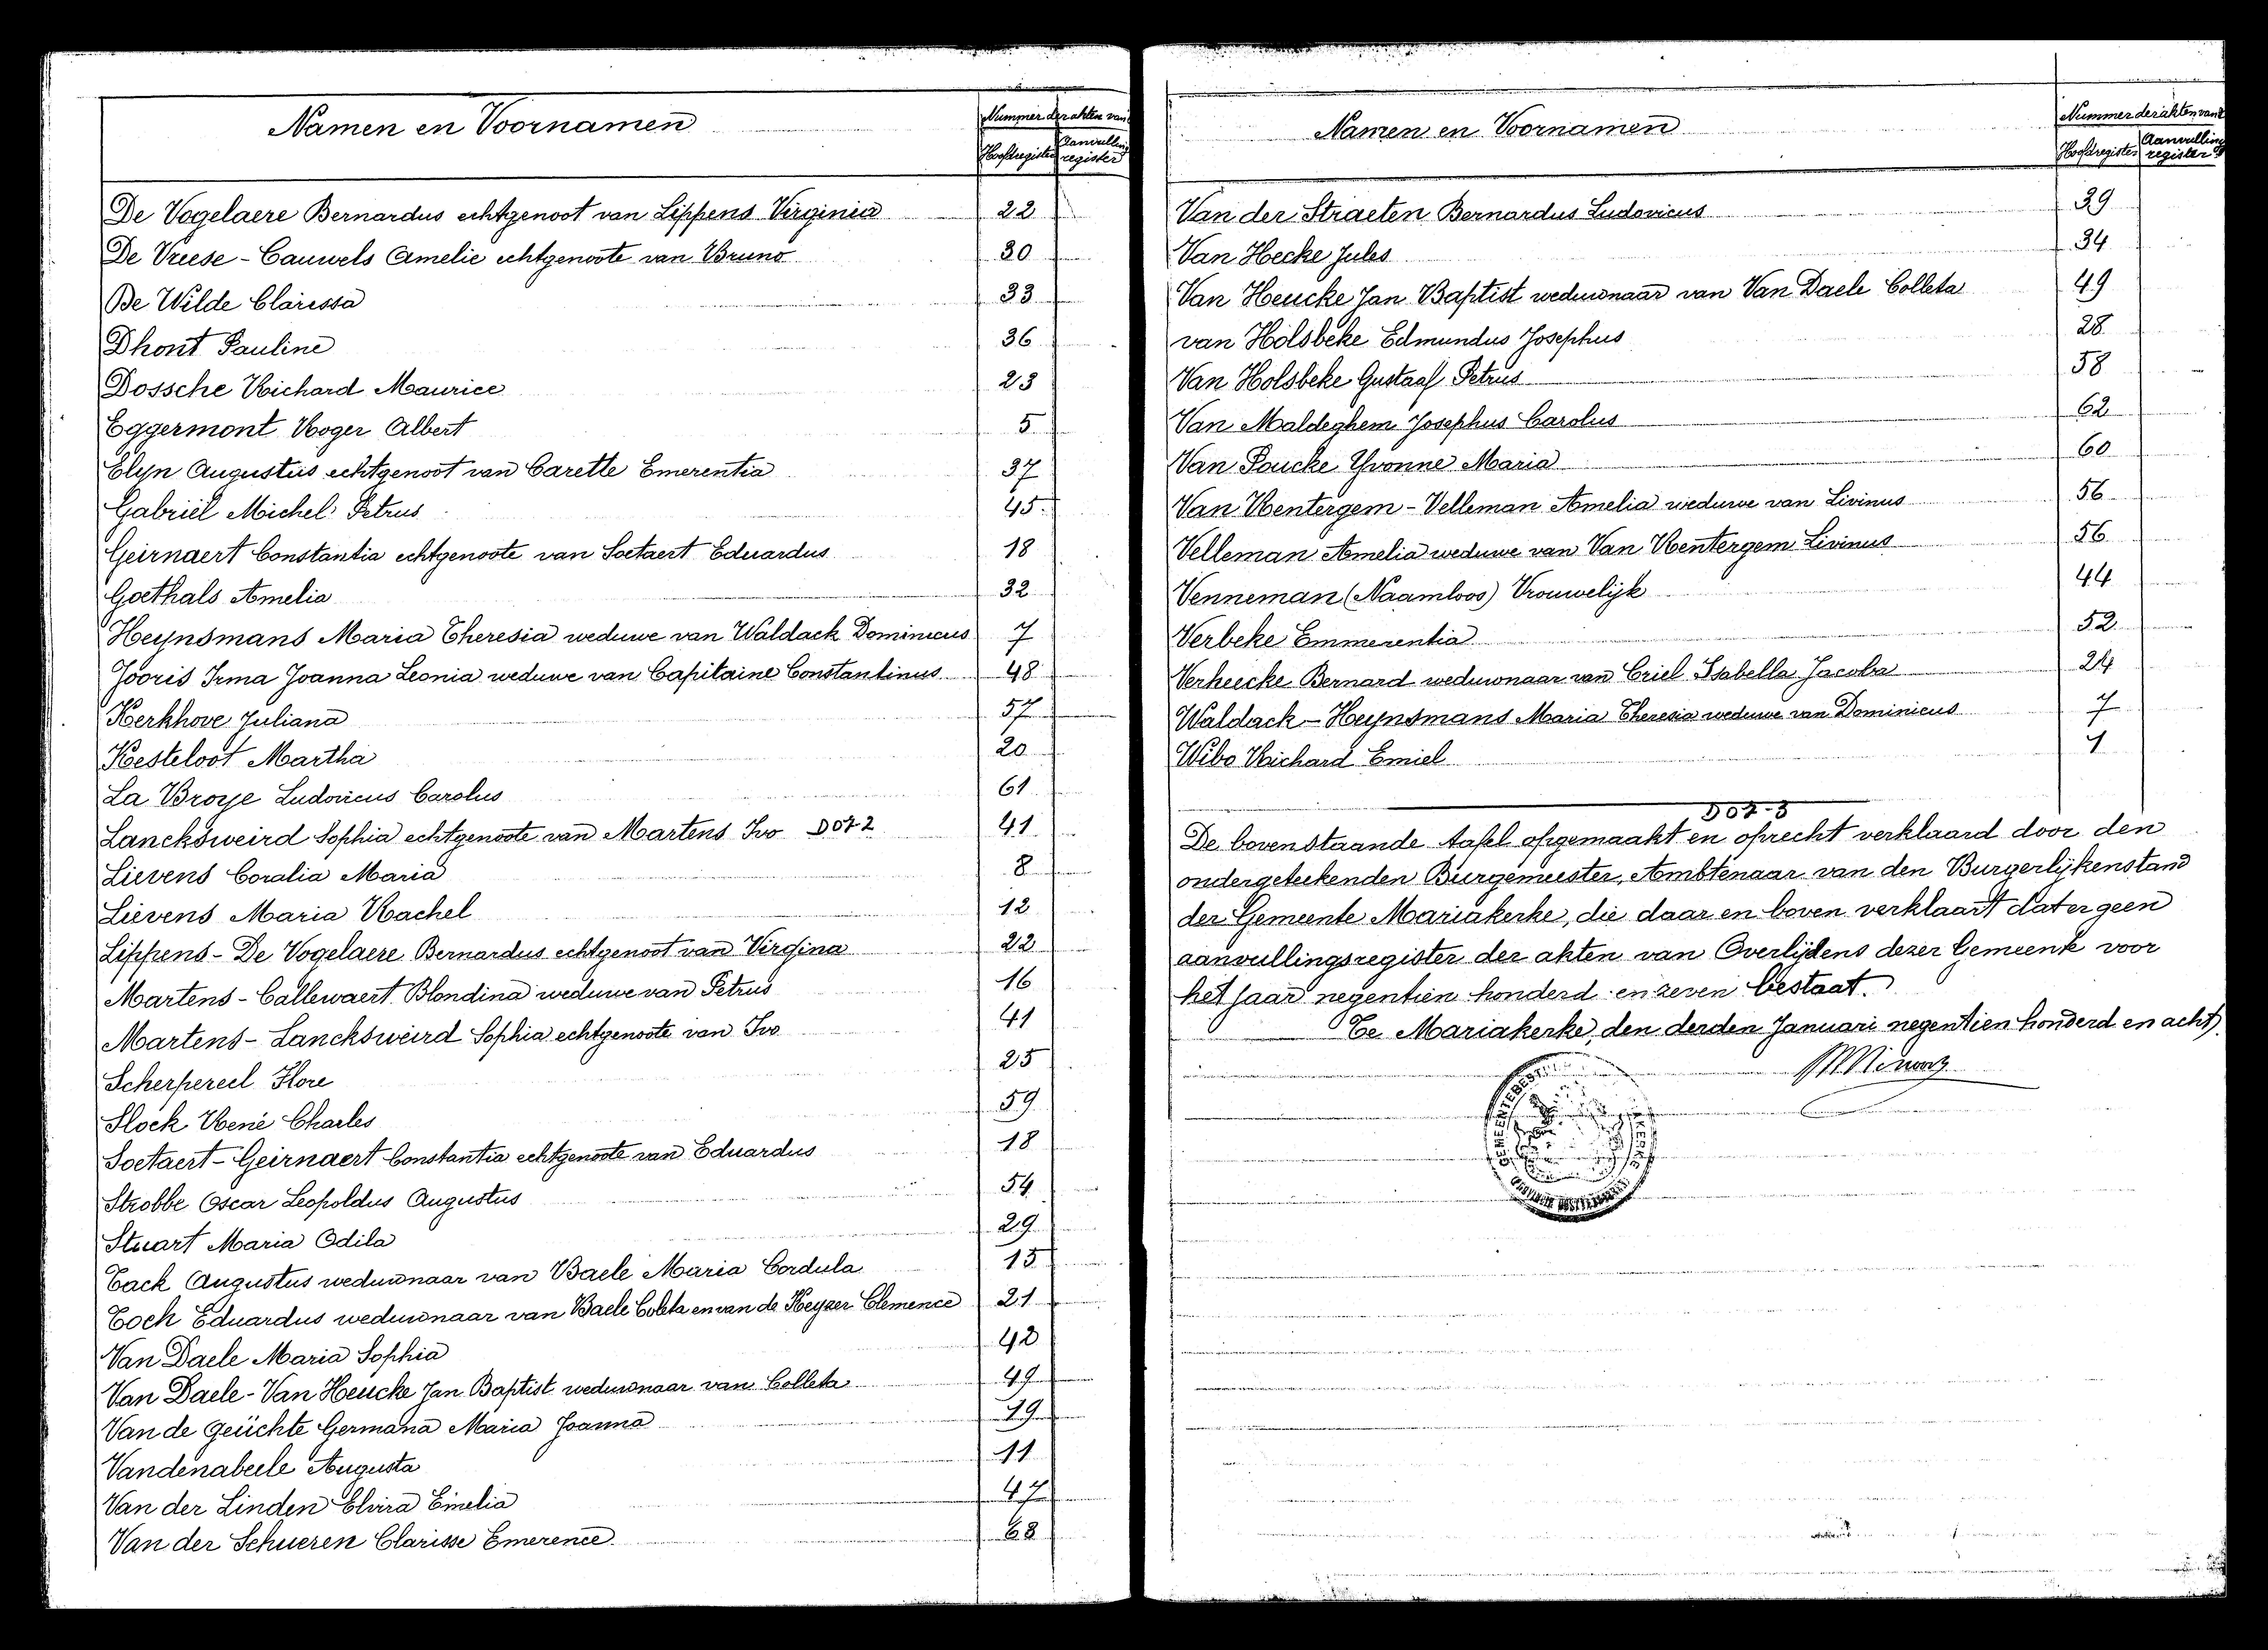 Namen en Voornamen
Nummer der akten van
Hoofdregister
Aanvulling
register
De Vogelaere Bernardus echtgenoot van Lippens Virginia 22
De Vreese - Cauwels Amelie echtgenoote van Bruno 30
De Wilde Clarissa 33
Dhont Pauline 36
Dossche Richard Maurice 23
Eggermont Roger Albert 5
Elyn Augustus echtgenoot van Carette Emerentia 37
Gabriël Michel Petrus 45
Geirnaert Constantia echtgenoote van Soetaert Eduardus 18
Goethals Amelia 32
Heynsmans Maria Theresia weduwe van Waldack Dominicus 7
Jooris Irma Joanna Leonia weduwe van Capitaine Constantinus 48
Kerkhove Juliana 57
Kesteloot Martha 20
La Broye Ludovicus Carolus 61
Lancksweird Sophia echtgenoote van Martens Ivo 41
Lievens Coralia Maria 8
Lievens Maria Rachel 12
Lippens - De Vogelaere Bernardus echtgenoot van Virgina 22
Martens - Callewaert Blondina weduwe van Petrus 16
Martens - Lancksweird Sophia echtgenoote van Ivo 41
Scherpereel Flore 25
Slock René Charles 59
Soetaert - Geirnaert Constantia echtgenoote van Eduardus 18
Strobbe Oscar Leopoldus Augustus 54
Stuart Maria Odila 29
Tack Augustus weduwnaar van Baele Maria Cordula 15
Toch Eduardus weduwnaar van Baele Coleta en van de Keyzer Clemence 21
Van Daele Maria Sophia 42
Van Daele - Van Heucke Jan Baptist weduwnaar van Colleta 49
Van de Geuchte Germana Maria Joanna 19
Vandenabeele Augusta 11
Van der Linden Elvira Emelia 47
Van der Schueren Clarisse Emerence 63
Namen en Voornamen
Nummer der akten van
Hoofdregister
Aanvulling
register
Van der Straeten Bernardus Ludovicus 39
Van Hecke Jules 34
Van Heucke Jan Baptist weduwnaar van Van Daele Colleta 49
van Holsbeke Edmundus Josephus 28
Van Holsbeke Gustaaf Petrus 58
Van Maldeghem Josephus Carolus 62
Van Poucke Yvonne Maria 60
Van Rentergem - Velleman Amelia weduwe van Livinus 56
Velleman Amelia weduwe van Van Rentergem Livinus 56
Venneman (Naamloos) Vrouwelijk 44
Verbeke Emmerentia 52
Verheecke Bernard weduwnaar van Criel Isabella Jacoba 24
Waldack - Heynsmans Maria Theresia weduwe van Dominicus 7
Wibo Richard Emiel 1
De bovenstaande tafel opgemaakt en oprecht verklaard door den
ondergeteekenden Burgemeester, Ambtenaar van den Burgerlijkenstand
der Gemeente Mariakerke, die daar en boven verklaart dat er geen
aanvullingsregister der akten van Overlijdens dezer Gemeente voor
het jaar negentien honderd en zeven bestaat.
Te Mariakerke, den derden Januari negentien honderd en acht.